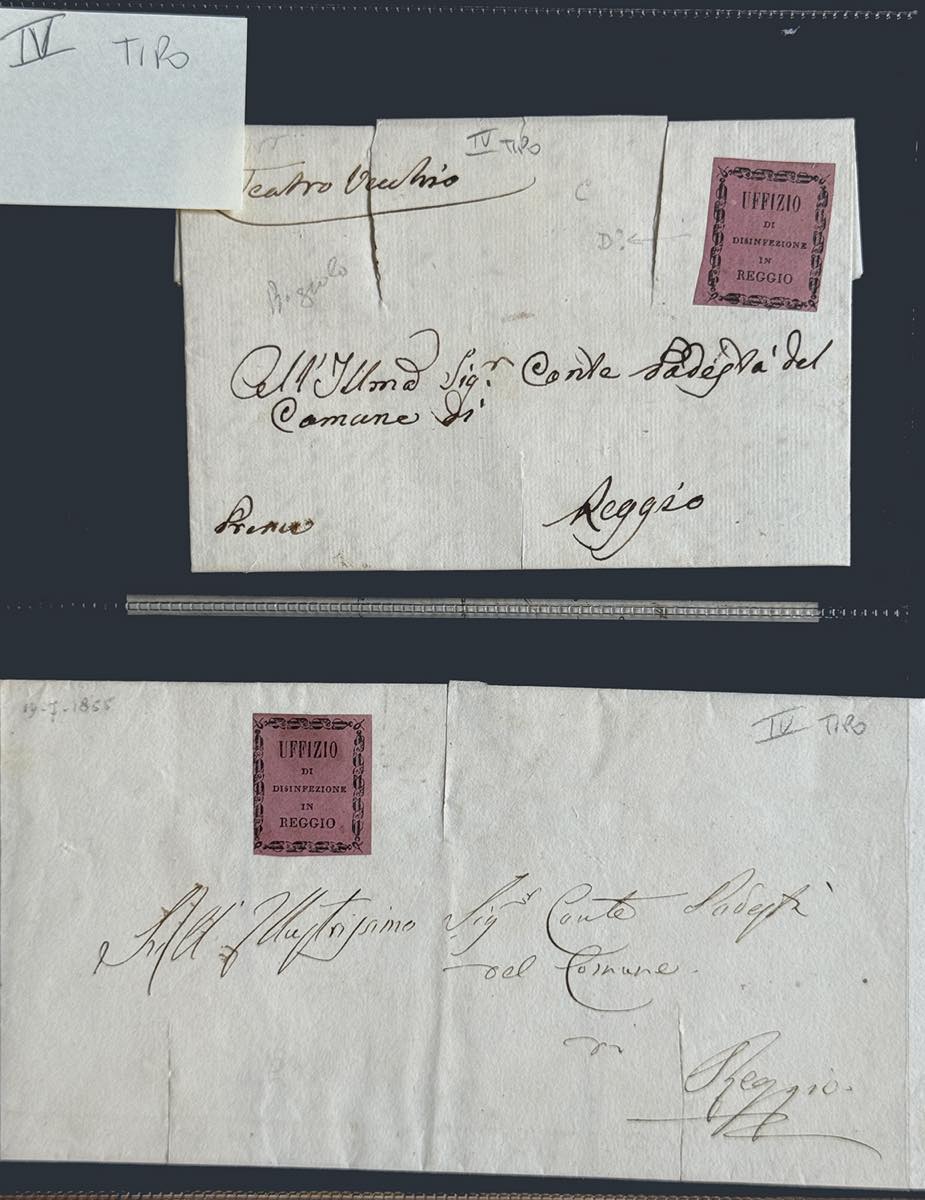 IV TIPO
IV TIPO
Teatro Vecchio
C
D:
UFFIZIO
DI
DISINFEZIONE
IN
REGGIO
All'Illmo Sigr. Conte Podestà del
Comune di
Reggio
19-7-1855
IV TIPO
UFFIZIO
DI
DISINFEZIONE
IN
REGGIO
All' Illustrissimo Sigr Conte Podestà
del Comune.
Reggio.